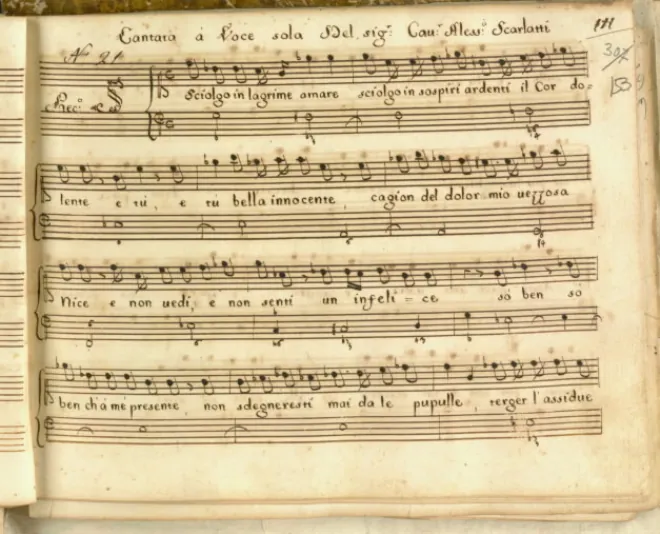 Cantata à Voce sola Del sig.r Cau.r Aless.o Scarlatti
171
No 21
307
153
Rec.o
Sciolgo in lagrime amare sciolgo in sospiri ardenti il Cor do=
lente e tù, e tù bella innocente, cagion del dolor mio uezzosa
Nice e non uedi, e non senti un infeli=ce sò ben so
ben ch'à mè presente, non sdegneresti mai da le pupulle, terger l'assidue